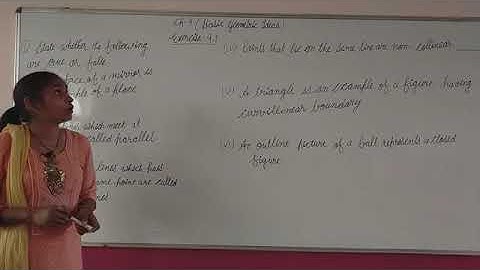 CH-4 (Basic Geometric Ideas)
Exercise 4.1
(i) State whether the following
are true or false
face of a mirror is
ple of a plane
es which meet at
called parallel
lines which pass
ame point are called
nes
(iv) Points that lie on the same line are non-collinear
(v) A triangle is an example of a figure having
curvilinear boundary
(vi) An outline picture of a ball represents a closed
figure